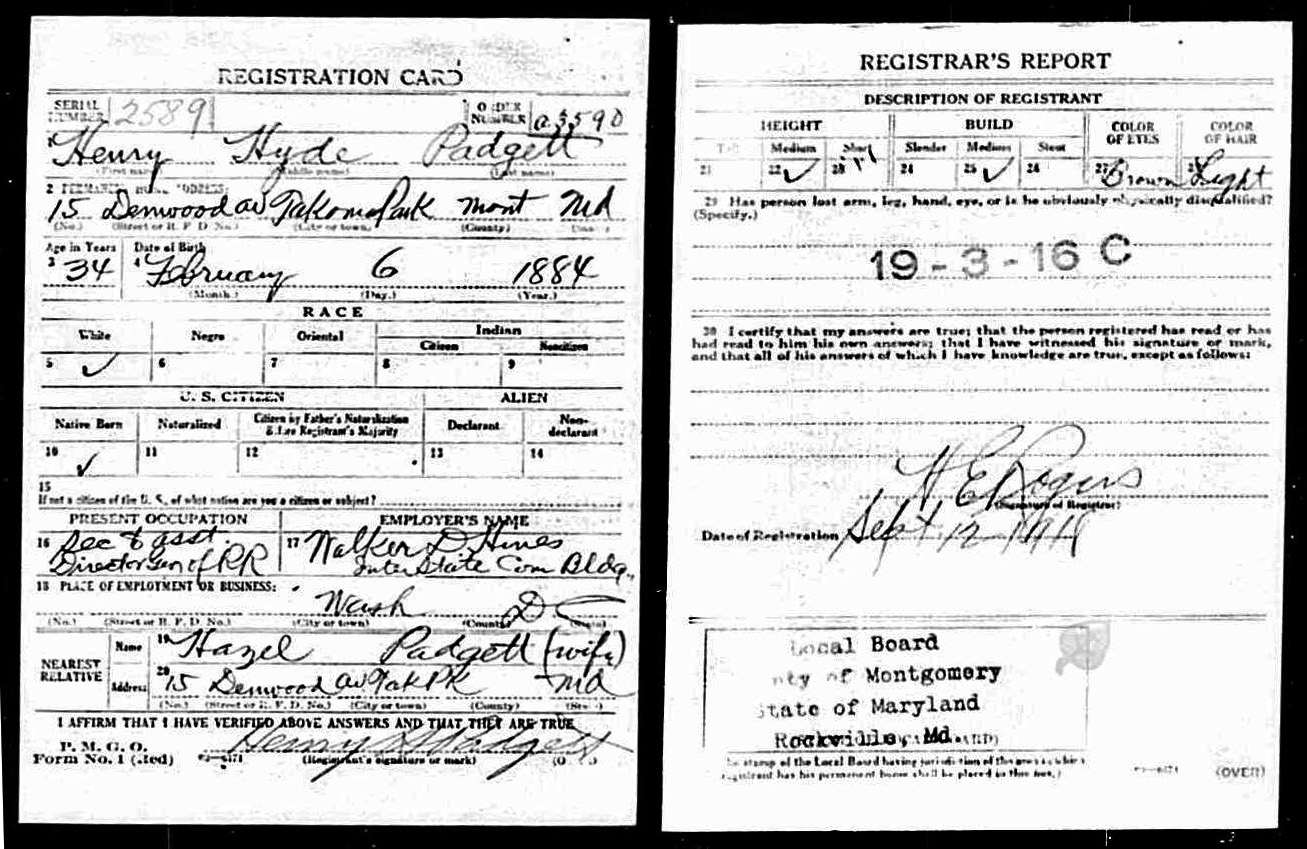 REGISTRATION CARD
SERIAL NUMBER 2589 ORDER NUMBER a3590
1 Henry Hyde Padgett
(First name) (Middle name) (Last name)
2 PERMANENT HOME ADDRESS:
15 Denwood av Takoma Park Mont Md
(No.) (Street or R. F. D. No.) (City or town) (County) (State)
Age in Years Date of Birth
3 34 4 February 6 1884
(Month.) (Day.) (Year.)
RACE
White Negro Oriental Indian
Citizen Noncitizen
5 ✓ 6 7 8 9
U. S. CITIZEN ALIEN
Native Born Naturalized Citizen by Father's Naturalization Before Registrant's Majority Declarant Non-declarant
10 ✓ 11 12 13 14
15
If not a citizen of the U. S., of what nation are you a citizen or subject?
PRESENT OCCUPATION EMPLOYER'S NAME
16 Sec to asst. 17 Walker D Hines
Director Gen of RR InterState Com Bldg.,
18 PLACE OF EMPLOYMENT OR BUSINESS:
Wash D C
(No.) (Street or R. F. D. No.) (City or town) (County) (State)
NEAREST RELATIVE
Name 19 Hazel Padgett (wife)
Address 20 15 Denwood av Tak Pk Md
(No.) (Street or R. F. D. No.) (City or town) (County) (State)
I AFFIRM THAT I HAVE VERIFIED ABOVE ANSWERS AND THAT THEY ARE TRUE
P. M. G. O.
Form No. 1 (Red) Henry H Padgett
(Registrant's signature or mark) (OVER)
REGISTRAR'S REPORT
DESCRIPTION OF REGISTRANT
HEIGHT BUILD COLOR OF EYES COLOR OF HAIR
Tall Medium Short Slender Medium Stout
21 22 ✓ 23 24 25 ✓ 26 27 Brown 28 Light
29 Has person lost arm, leg, hand, eye, or is he obviously physically disqualified?
(Specify.)
19-3-16 C
30 I certify that my answers are true; that the person registered has read or has
had read to him his own answers; that I have witnessed his signature or mark,
and that all of his answers of which I have knowledge are true, except as follows:
H E Rogers
(Signature of Registrar)
Date of Registration Sept 12 1918
Local Board
nty of Montgomery
State of Maryland
Rockville, Md.
stamp of the Local Board having jurisdiction of the area in which
registrant has his permanent home shall be placed in this box.)
(OVER)